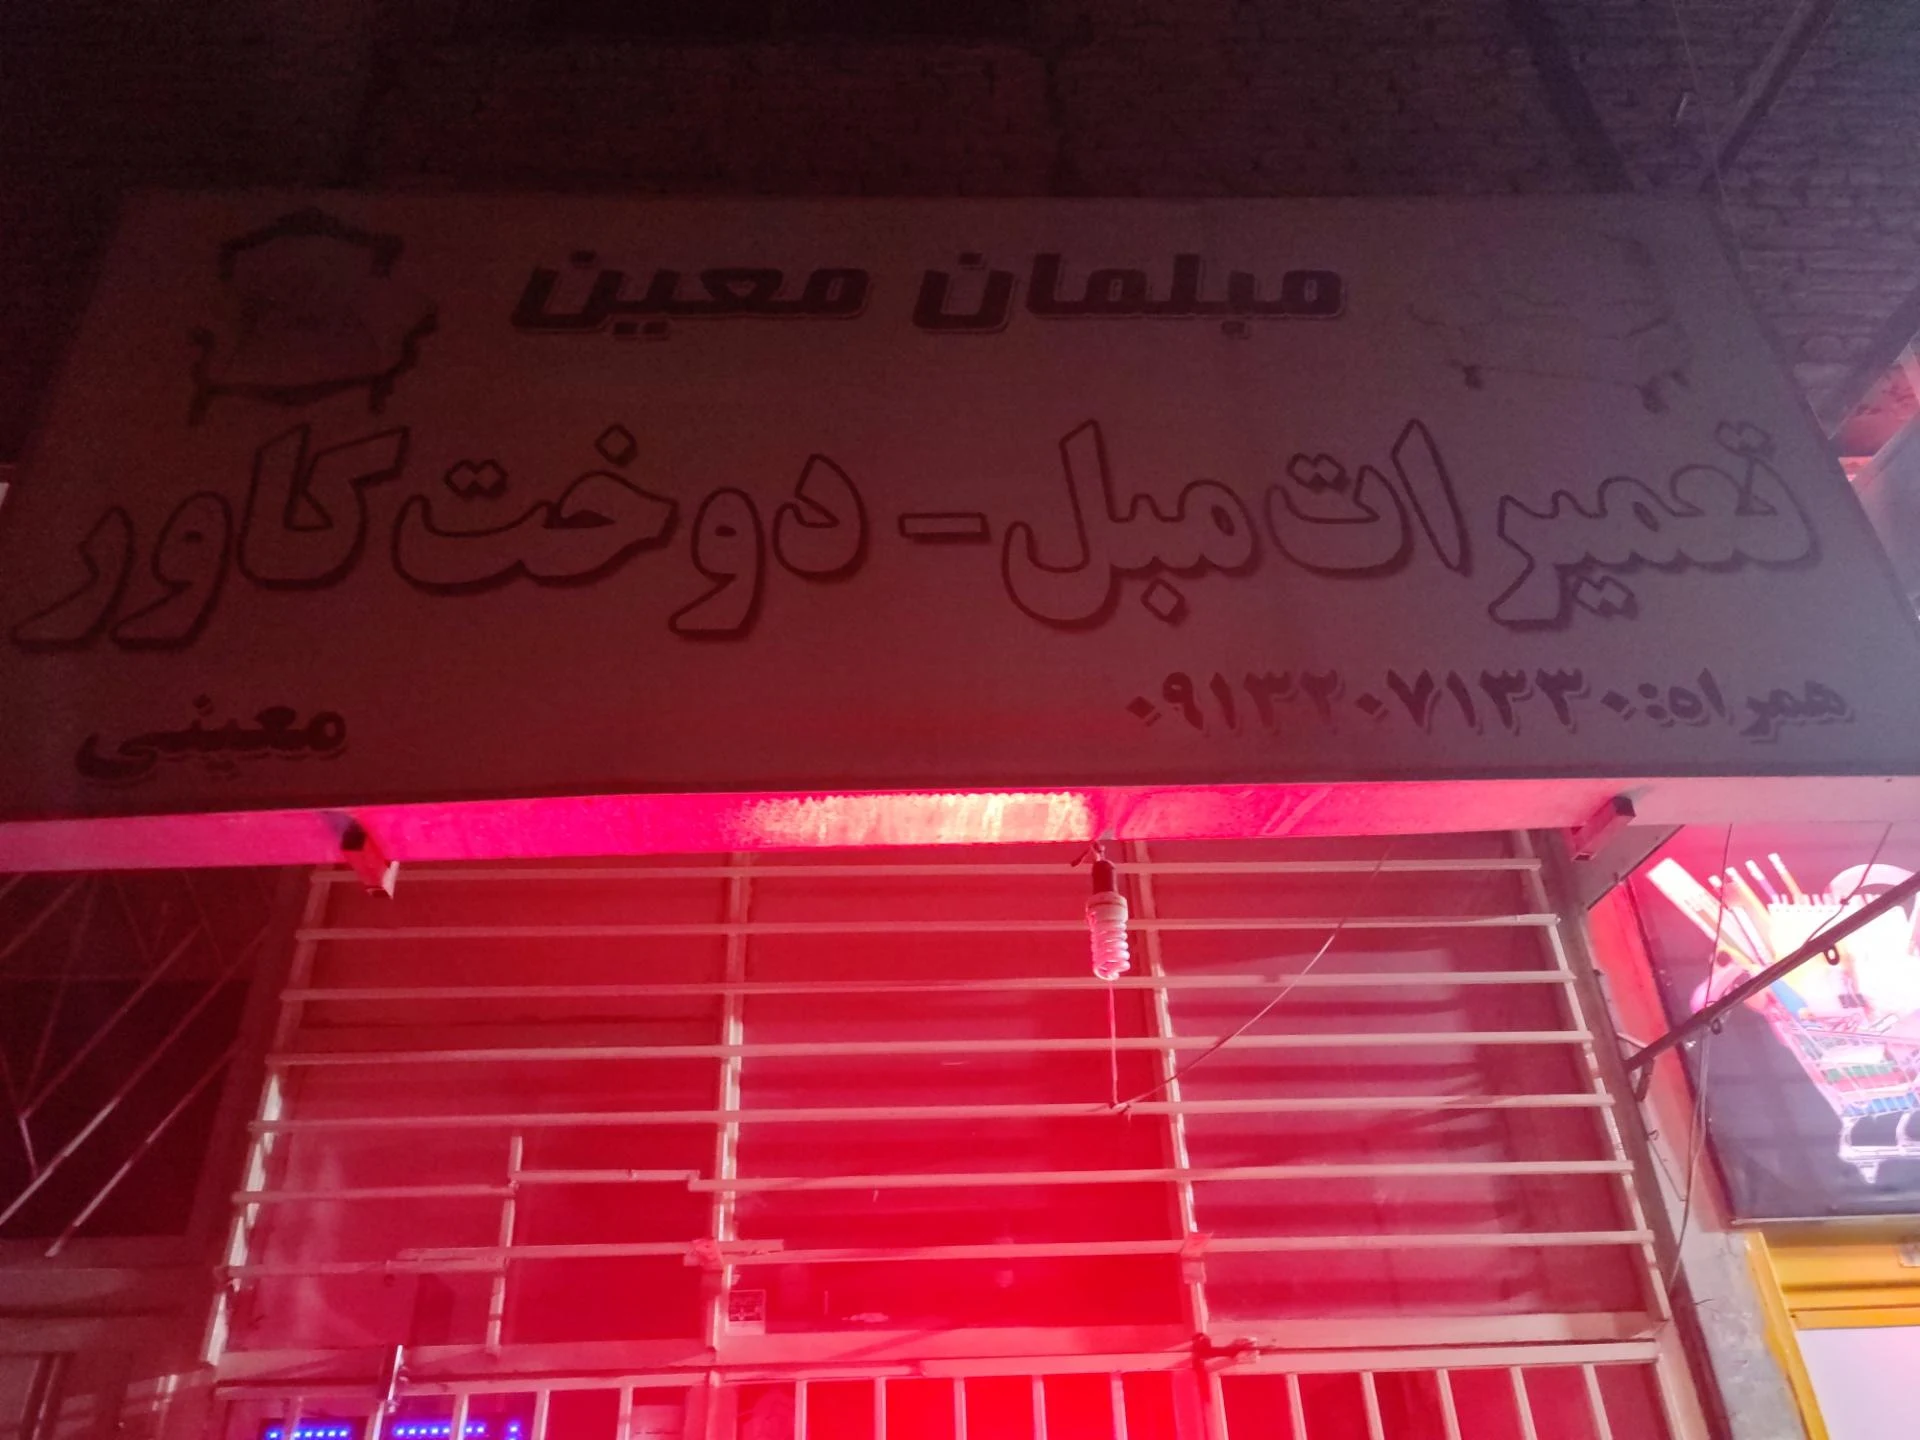 مبلمان معین
تعمیرات مبل - دوخت کاور
همراه: ۰۹۱۳۲۰۷۱۳۳۰
معینی